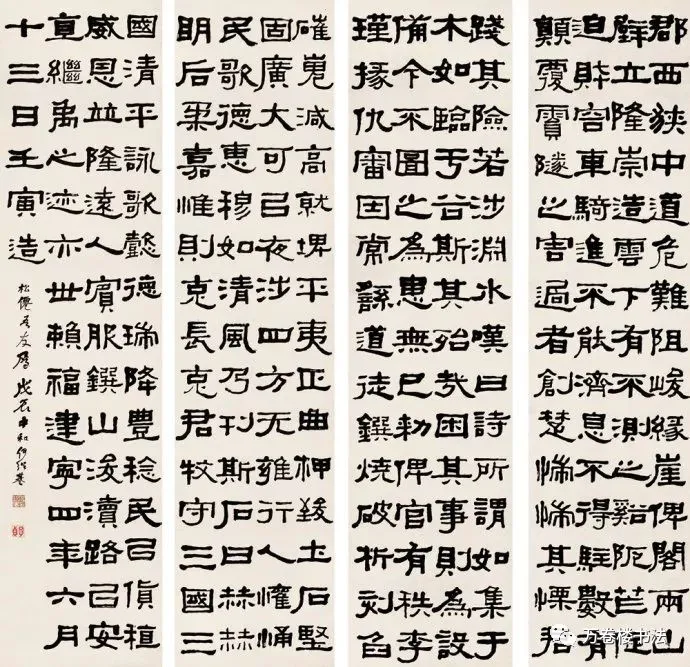 郡西狹中道危難阻峻緣崖俾閣兩山
壁立隆崇造雲下有不測之谿阨芒促
迫財容車騎進不能濟息不得駐數有
顛覆霣隧之害過者創楚惴惴其慄君
踐其險若涉淵水嘆曰詩所謂如集于
木如臨于谷斯其殆哉困其事則為設
備今不圖之為患無已勑俾官有秩李
瑾掾仇審因常繇道徒鐉燒破析刻臽
磪嵬減高就埤平夷正曲柙致土石堅
固廣大可㠯夜涉四方无雍行人懽悀
民歌德惠穆如清風乃刊斯石曰赫赫
明后柔嘉惟則克長克君牧守三國三
國清平詠歌懿德瑞降豐稔民㠯貨稙
威恩並隆遠人賓服鐉山浚瀆路㠯安
直繼禹之迹亦世賴福建寧四年六月
十三日壬寅造
松僊老友屬 戊辰中和何紹基
万卷楼书法